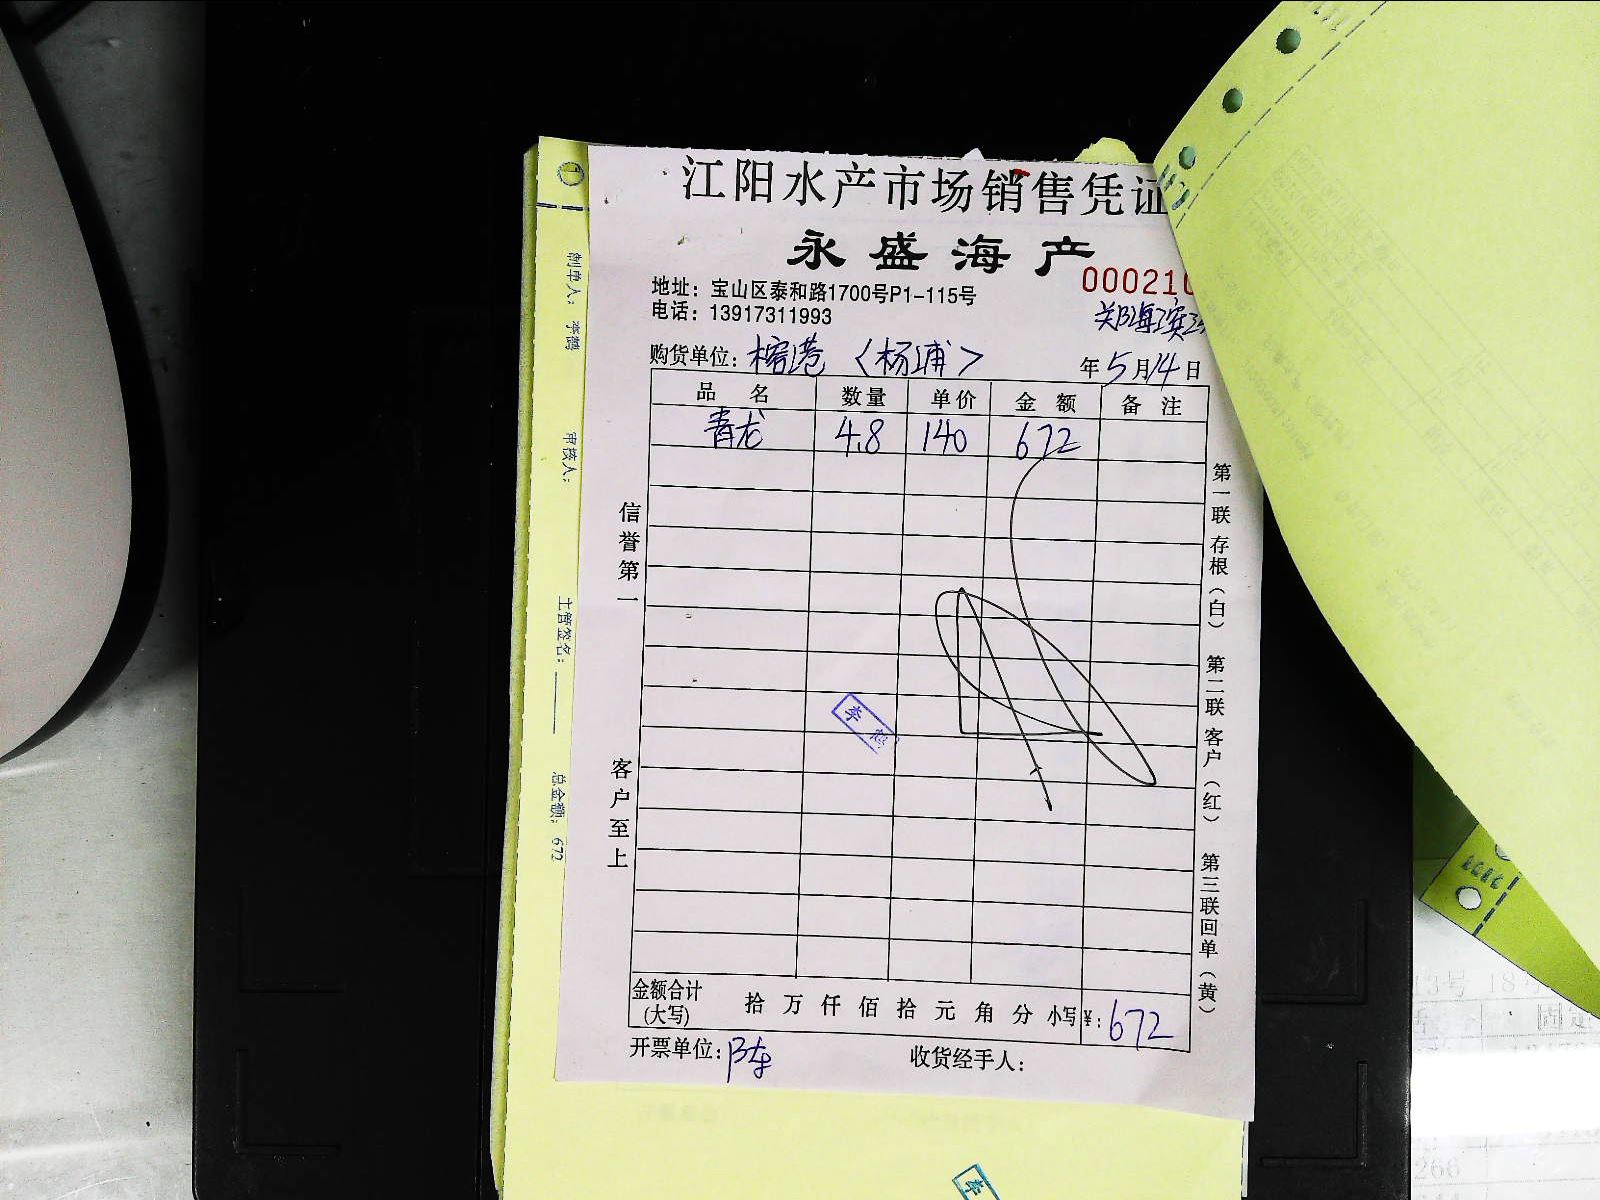 江阳水产市场销售凭证
永盛海产
000210
地址：宝山区泰和路1700号P1-115号
电话：13917311993
购货单位：榕港〈杨浦〉 年5月14日
品名 数量 单价 金额 备注
青龙 4.8 140 672
信誉第一
客户至上
第一联存根（白） 第二联客户（红） 第三联回单（黄）
金额合计(大写) 拾万仟佰拾元角分 小写¥：672
开票单位：陈 收货经手人：
制单人：李鹤 审核人： 主管签名： 总金额：672
李鹤
13号 18
固定
266